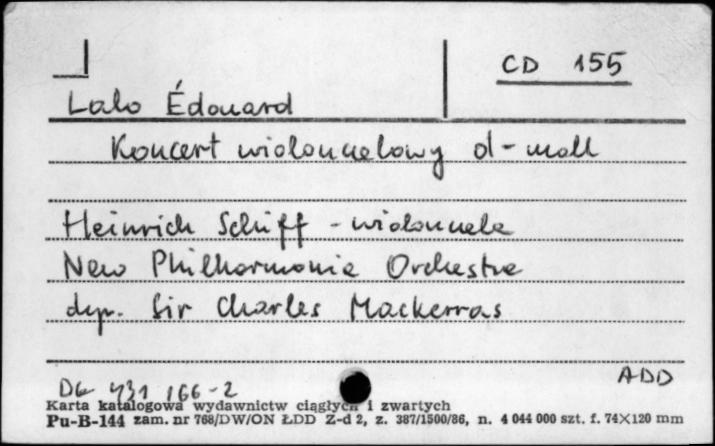 CD 155
Lalo Édouard
Koncert wiolonczelowy d-moll
Heinrich Schiff - wiolonczela
New Philharmonia Orchestra
dyr. Sir Charles Mackerras
ADD
DG 431 166-2
Karta katalogowa wydawnictw ciągłych i zwartych
Pu-B-144 zam. nr 768/DW/ON ŁDD Z-d 2, z. 387/1500/86, n. 4 044 000 szt. f. 74×120 mm